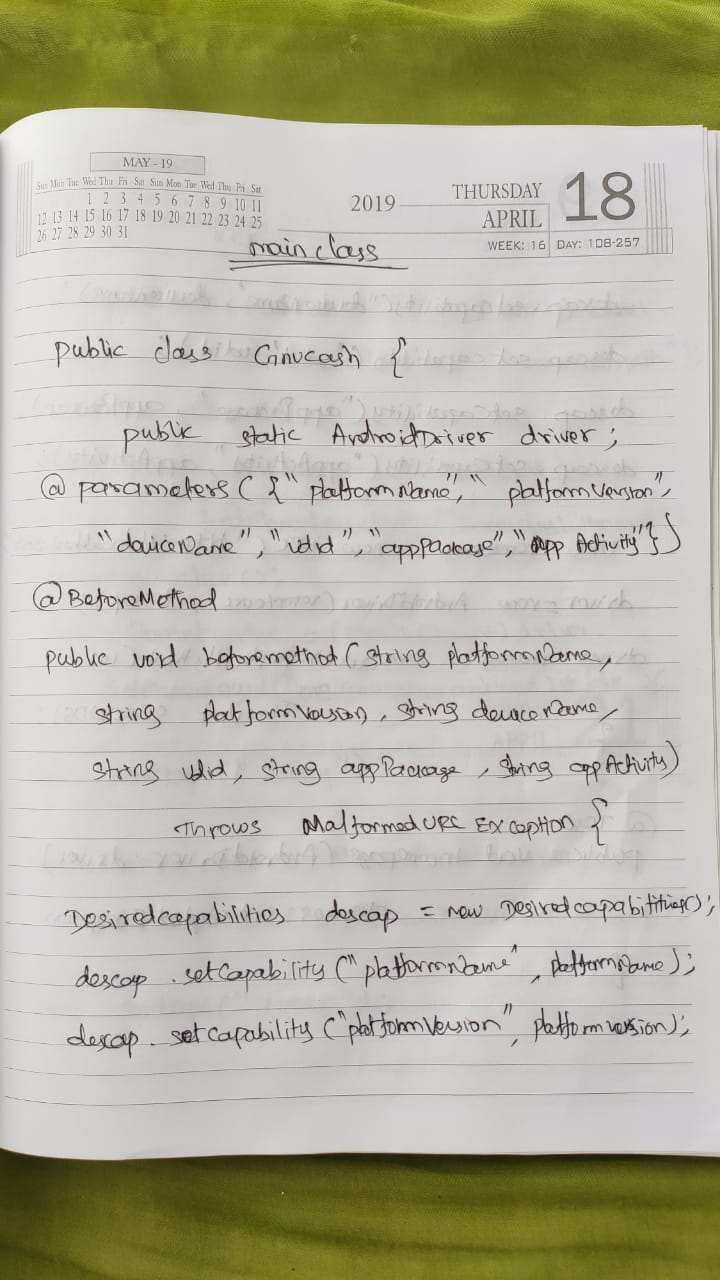 MAY - 19
Sun Mon Tue Wed Thu Fri Sat Sun Mon Tue Wed Thu Fri Sat
1 2 3 4 5 6 7 8 9 10 11
12 13 14 15 16 17 18 19 20 21 22 23 24 25
26 27 28 29 30 31
2019
THURSDAY
APRIL
18
WEEK: 16 DAY: 108-257
main class
public class Gnucash {
public static AndroidDriver driver;
@ parameters ( {"platformName", "platformVersion",
"deviceName", "udid", "appPackage", "app Activity"})
@ BeforeMethod
public void beforemethod ( string platformName,
string platformVersion, string deviceName,
string udid, string appPackage, string appActivity)
Throws MalformedURL Exception {
Desiredcapabilities descap = new Desiredcapabilities();
descap .setCapability ("platformName", platformName);
descap . setCapability ("platformVersion", platformversion);